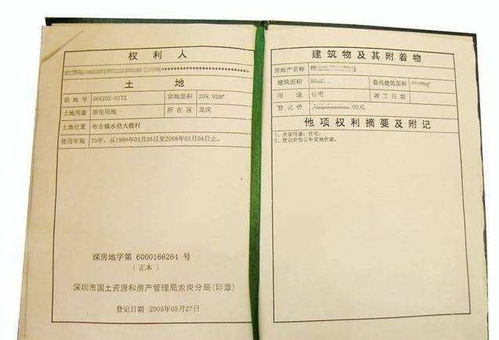 权利人
土地
宗地号 G00202-0172 宗地面积 209.92m²
土地用途 居住用地 所在区 龙岗
土地位置 布吉镇水径大靓村
使用年限 70年，从1999年03月05日至2069年03月04日止。
深房地字第 6000166264 号
（正本）
深圳市国土资源和房产管理局龙岗分局(印章)
登记日期 2005年05月27日
建筑物及其附着物
房地产名称
建筑面积 套内建筑面积
用途 住宅 竣工日期
登记价 .00元
他项权利摘要及附记
1、房屋用途：住宅；
2、登记价包含补交地价款。